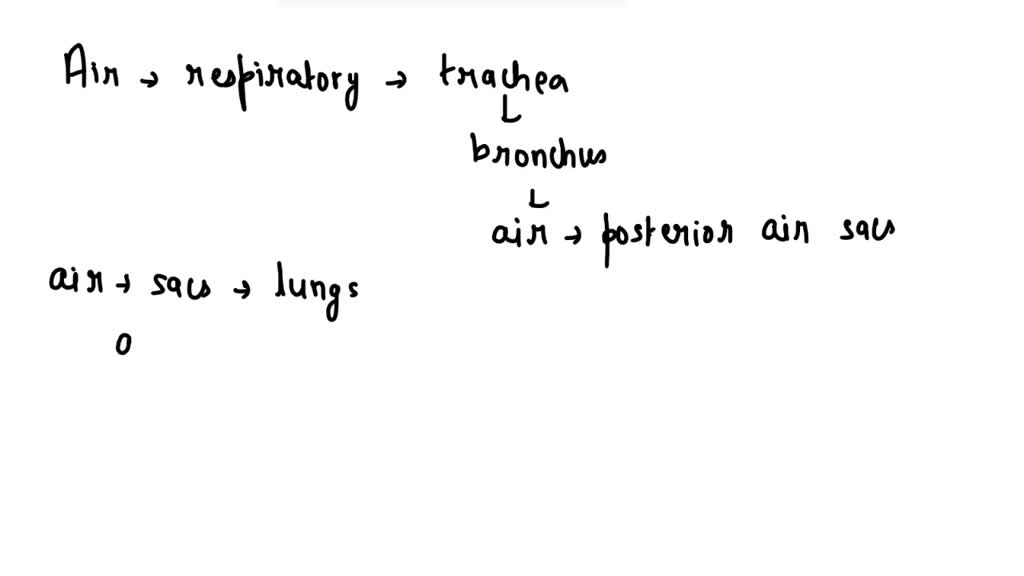 Air → respiratory → trachea
bronchus
air → posterior air sacs
air → sacs → lungs
O